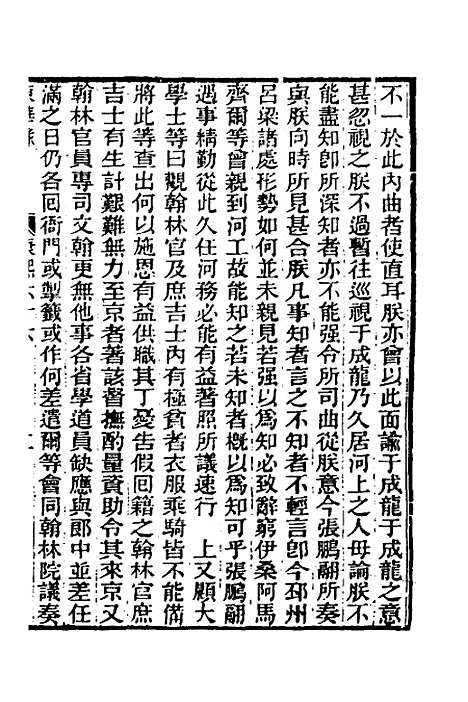 不一於此內曲者使直耳朕亦曾以此面諭于成龍于成龍之意
甚忽視之朕不過暫往巡視于成龍乃久居河上之人毋論朕不
能盡知卽所深知者亦不能强令所司曲從朕意今張鵬翮所奏
與朕向時所見甚合朕凡事知者言之不知者不輕言卽今邳州
呂梁諸處形勢如何並未親見若强以爲知必致辭窮伊桑阿馬
齊爾等曾親到河工故能知之若未知者槪以爲知可乎張鵬翮
遇事精勤從此久任河務必能有益著照所議速行　上又顧大
學士等曰觀翰林官及庶吉士內有極貧者衣服乘騎皆不能備
將此等查出何以施恩有益供職其丁憂告假回籍之翰林官庶
吉士有生計艱難無力至京者著該督撫酌量資助令其來京又
翰林官員專司文翰更無他事各省學道員缺應與郎中並差任
滿之日仍各回衙門或掣籤或作何差遣爾等會同翰林院議奏
東華錄　康熙六十六